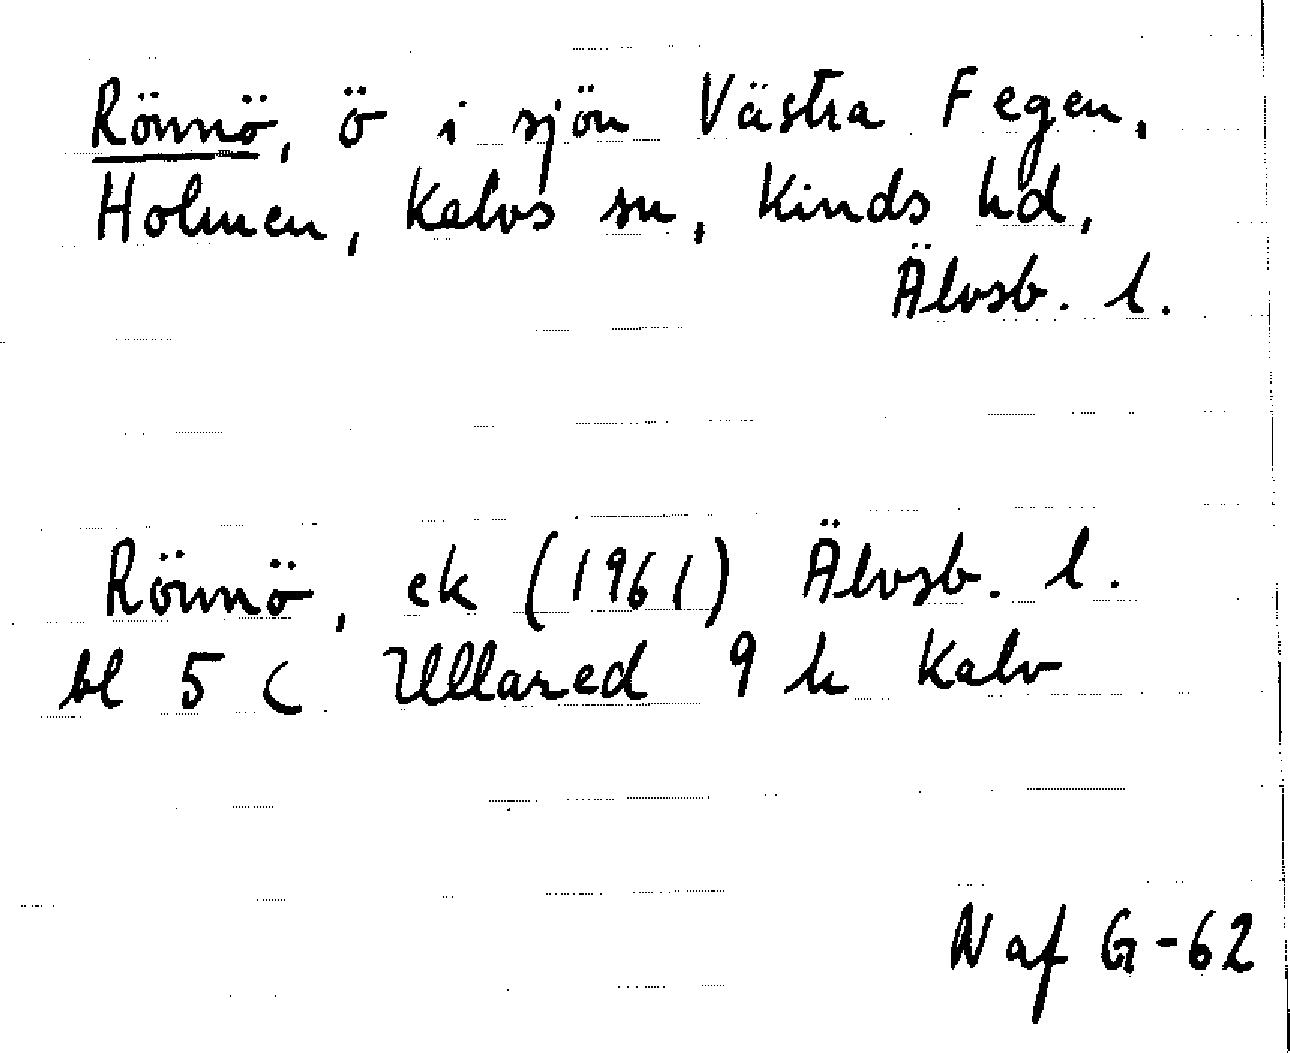 Rönnö, ö i sjön Västra Fegen,
Holmen, Kalvs sn, Kinds hd,
Älvsb. l.
Rönnö, ek (1961) Älvsb. l.
bl 5 C Ullared 9 h Kalv
N af G-62